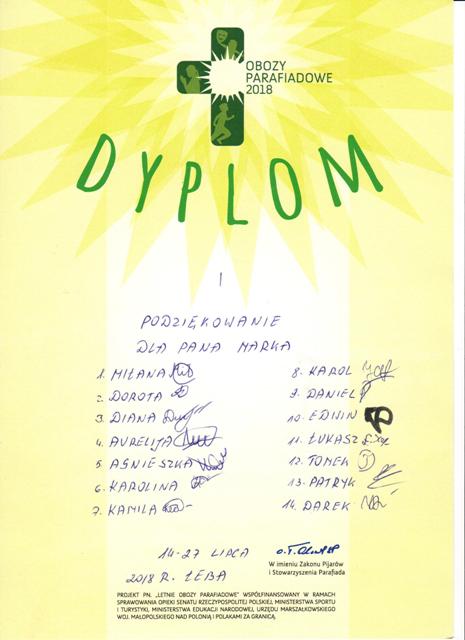 OBOZY
PARAFIADOWE
2018
DYPLOM
I
PODZIĘKOWANIE
DLA PANA MARKA
1. MILANA
2. DOROTA
3. DIANA
4. AVRELIJA
5. AGNIESZKA
6. KAROLINA
7. KAMILA
8. KAROL
9. DANIEL
10. EDVIN
11. ŁUKASZ
12. TOMEK
13. PATRYK
14. DAREK
14-27 LIPCA
2018 R. ŁEBA
W imieniu Zakonu Pijarów
i Stowarzyszenia Parafiada
PROJEKT PN. „LETNIE OBOZY PARAFIADOWE" WSPÓŁFINANSOWANY W RAMACH
SPRAWOWANIA OPIEKI SENATU RZECZYPOSPOLITEJ POLSKIEJ, MINISTERSTWA SPORTU
I TURYSTYKI, MINISTERSTWA EDUKACJI NARODOWEJ, URZĘDU MARSZAŁKOWSKIEGO
WOJ. MAŁOPOLSKIEGO NAD POLONIĄ I POLAKAMI ZA GRANICĄ.